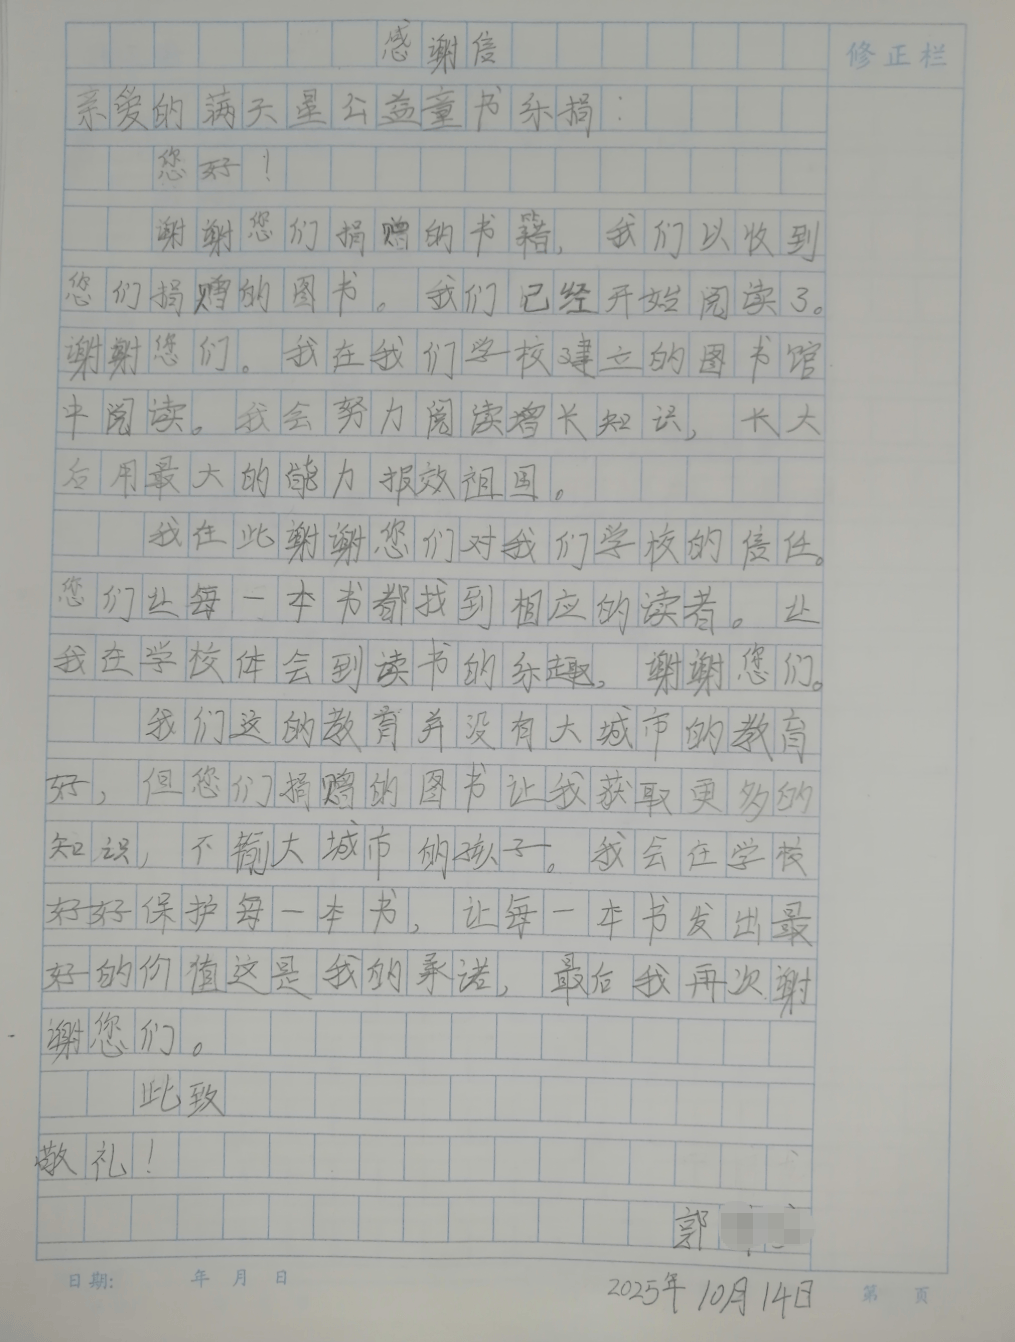 感谢信
修正栏
亲爱的满天星公益童书乐捐：
您好！
谢谢您们捐赠的书籍，我们以收到
您们捐赠的图书。我们已经开始阅读了。
谢谢您们。我在我们学校建立的图书馆
中阅读。我会努力阅读增长知识，长大
后用最大的能力报效祖国。
我在此谢谢您们对我们学校的信任。
您们让每一本书都找到相应的读者。让
我在学校体会到读书的乐趣，谢谢您们。
我们这的教育并没有大城市的教育
好，但您们捐赠的图书让我获取更多的
知识，不输大城市的孩子。我会在学校
好好保护每一本书，让每一本书发出最
好的价值这是我的承诺，最后我再次谢
谢您们。
此致
敬礼！
郭
日期: 年 月 日
2025年10月14日
第 页